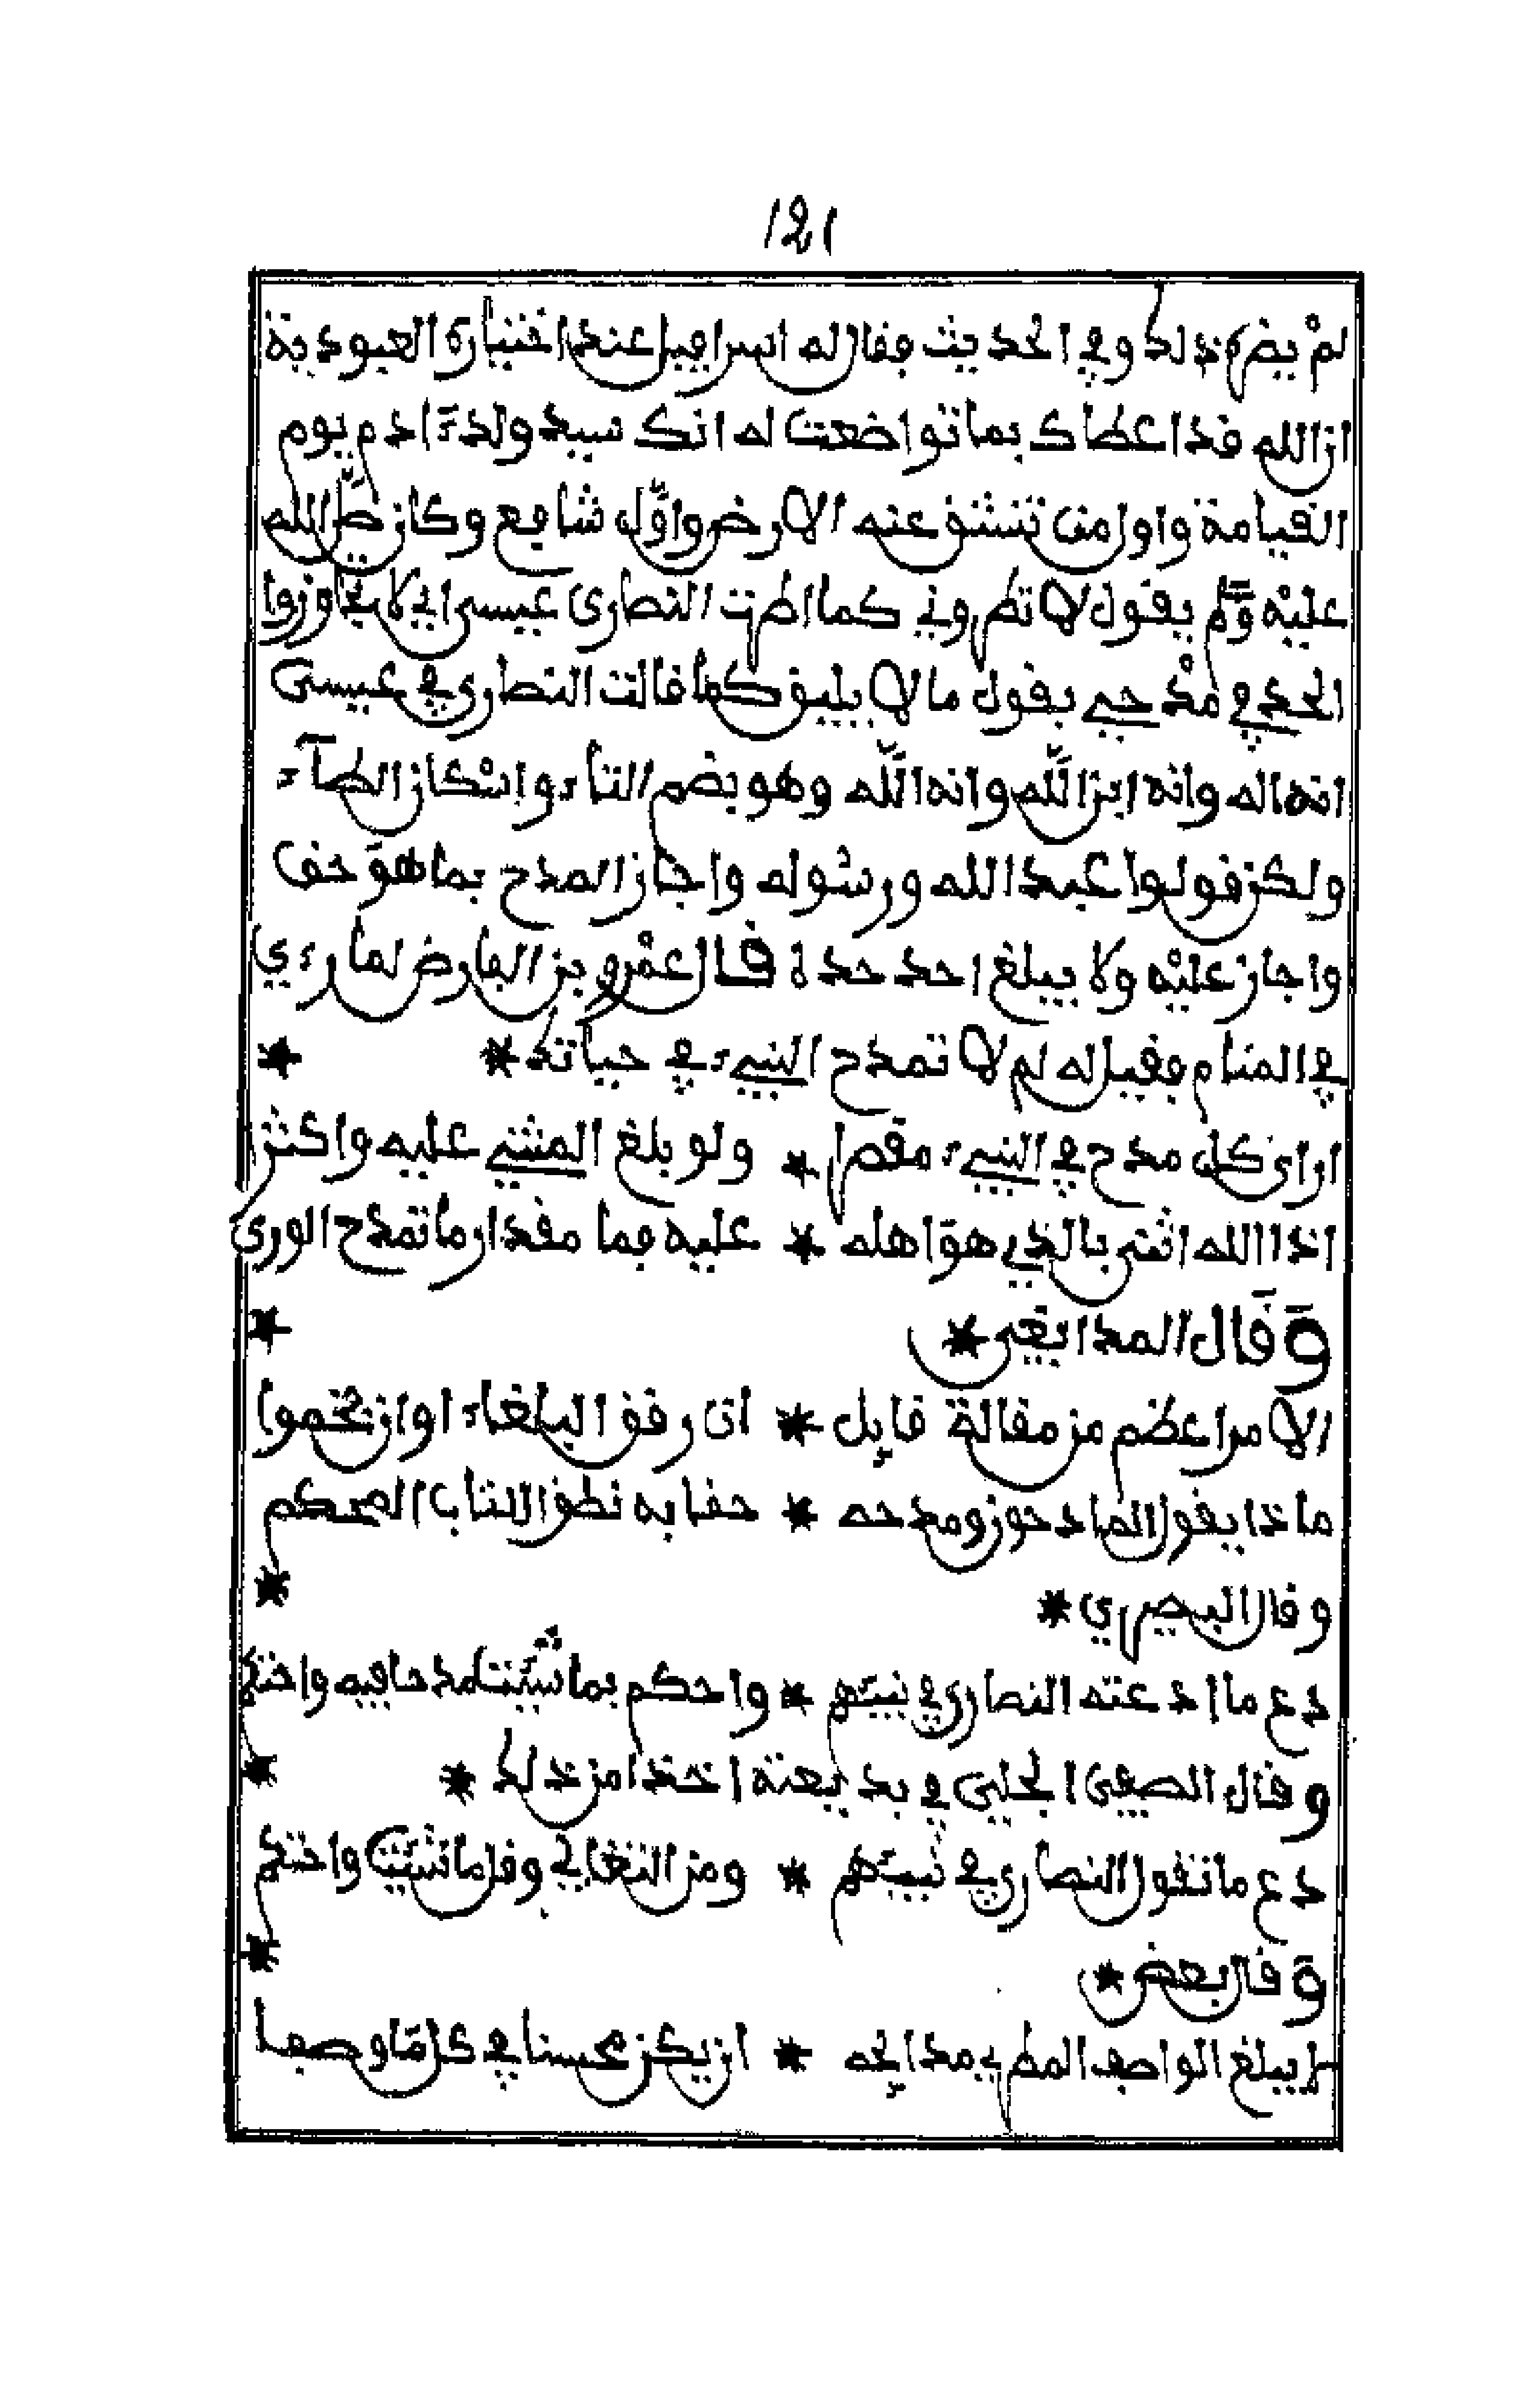 121
لم يضره ذلك وفي الحديث فقال له اسرافيل عند اختياره العبودية
ان الله قد اعطاك بما تواضعت له انك سيد ولدء ادم يوم
القيامة واول من تنشق عنه الارض واوّل شافع وكان صلى الله
عليه وسلم يقول لا تطروني كما اطرت النصارى عيسى اي لا يتجاوزوا
الحد في مدحي بقول ما لا يليق كما قالت النصارى في عيسى
انه اله وانه ابن اللّه وانه اللّه وهو بضم التاء واسكان الطاء
ولكن قولوا عبد الله ورسوله واجاز المدح بما هو حق
واجاز عليه ولا يبلغ احد حده قال عمرو بن الفارض لما رءي
في المنام فقيل له لم لا تمدح النبيء في حياتك * *
ارى كل مدح في النبيء مقصرا * ولو بلغ المثني عليه واكثر
اذا الله اثنى بالذي هو اهله * عليه فما مقدار ما تمدح الورى
وقال المدايغي * *
الامر اعظم من مقالة قايل * ان رقق البلغاء او ان يختموا
ماذا يقول المادحون ومدحه * حقا به نطق الكتاب المحكم
*
وقال البصيري *
دع ما ادعته النصارى في نبيهم * واحكم بما شئت مدحا فيه واحتكم
وقال الصفي الحلي في بديعته اخذا من ذلك * *
دع ما تقول النصارى في نبيهم * ومن التغالي وقل ما شئت واحتكم
وقال بعض * *
لا يبلغ الواصف المطري مدايحه * ان يكن محسنا في كل ما وصفا